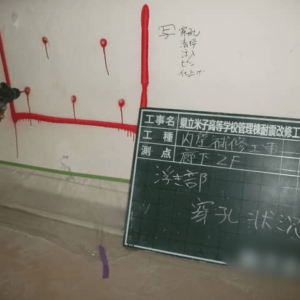 写
穿孔
清掃
注入
ピン
仕上げ
工事名 県立米子高等学校管理棟耐震改修工
工種 内壁補修工事
測点 廊下2F
浮き部
穿孔状況